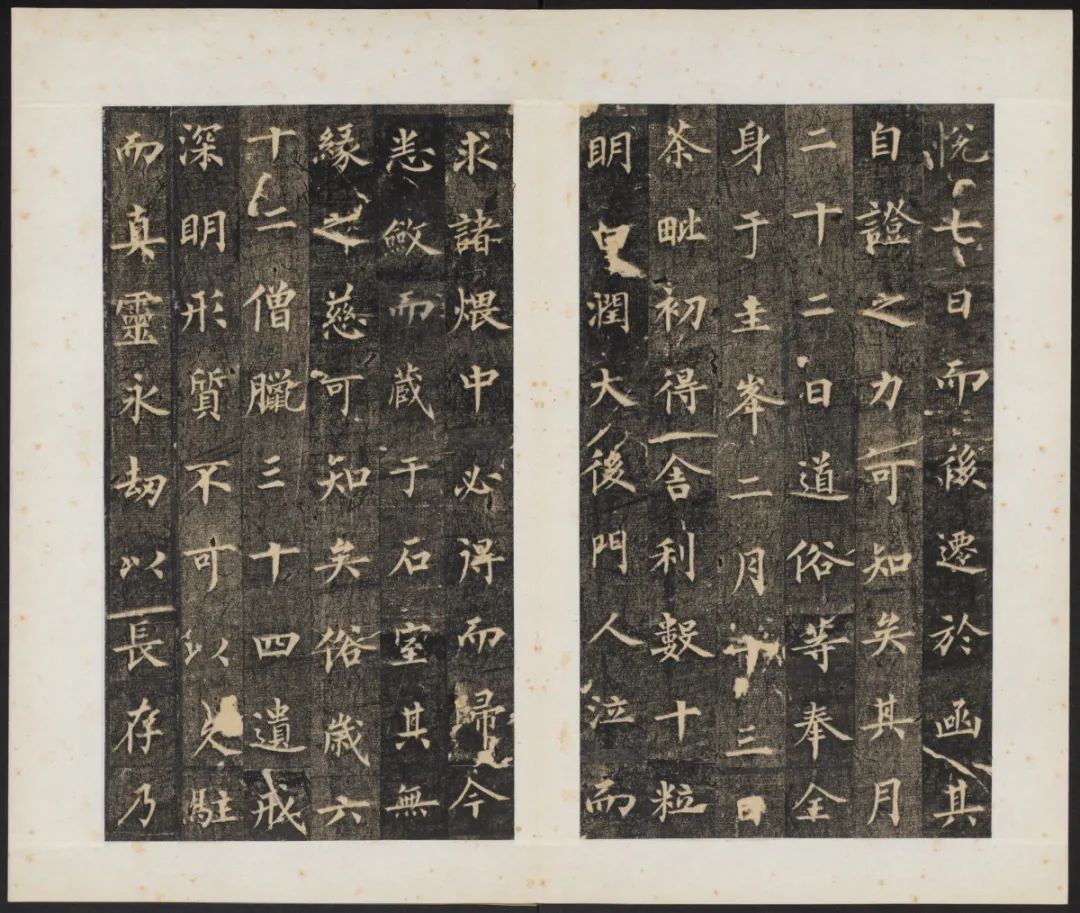 悅七日而後遷於函其
自證之力可知矣其月
二十二日道俗等奉全
身于圭峯二月十三日
荼毗初得舍利數十粒
明白潤大後門人泣而
求諸煨中必得而歸今
悉斂而藏于石室其無
緣之慈可知矣俗歲六
十二僧臘三十四遺戒
深明形質不可以久駐
而真靈永劫以長存乃